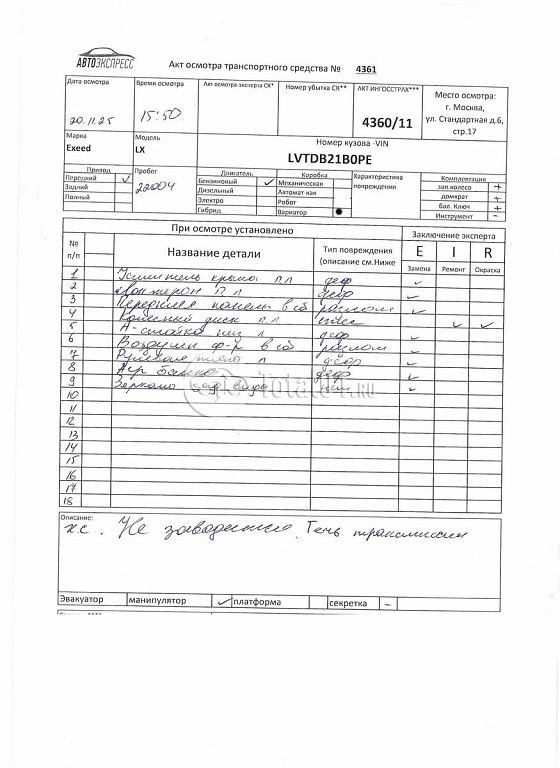 АВТОЭКСПРЕСС
Акт осмотра транспортного средства № 4361
Дата осмотра Время осмотра Акт осмотра эксперта СК* Номер убытка СК** АКТ ИНГОССТРАХ*** Место осмотра:
г. Москва,
20.11.25 15:50 4360/11 ул. Стандартная д.6,
стр.17
Марка Модель Номер кузова -VIN
Exeed LX LVTDB21B0PE
Привод Пробег Двигатель Коробка Характеристика Комплектация
Передний ✓ 22004 Бензиновый ✓ Механическая повреждения зап.колесо +
Задний Дизельный Автомат кая домкрат +
Полный Электро Робот бал. Ключ +
Гибрид Вариатор ● Инструмент -
При осмотре установлено Заключение эксперта
№ Название детали Тип повреждения E I R
п/п (описание см.Ниже Замена Ремонт Окраска
1 Усилитель крыла п л деф ✓
2 Лонжерон п л деф ✓
3 Передняя панель в сб разлом ✓
4 диск п л ✓ ✓
5 А-стойка низ л деф
6 Воздушн ф-р в сб разлом ✓
7 л деф ✓
8 Аир деф ✓
9 Зеркало зад вида ✓
10
11
12
13
14
15
16
17
18
Total01.RU
Описание:
х.с. Не заводится. Течь трансмиссии
Эвакуатор манипулятор ✓ платформа секретка -